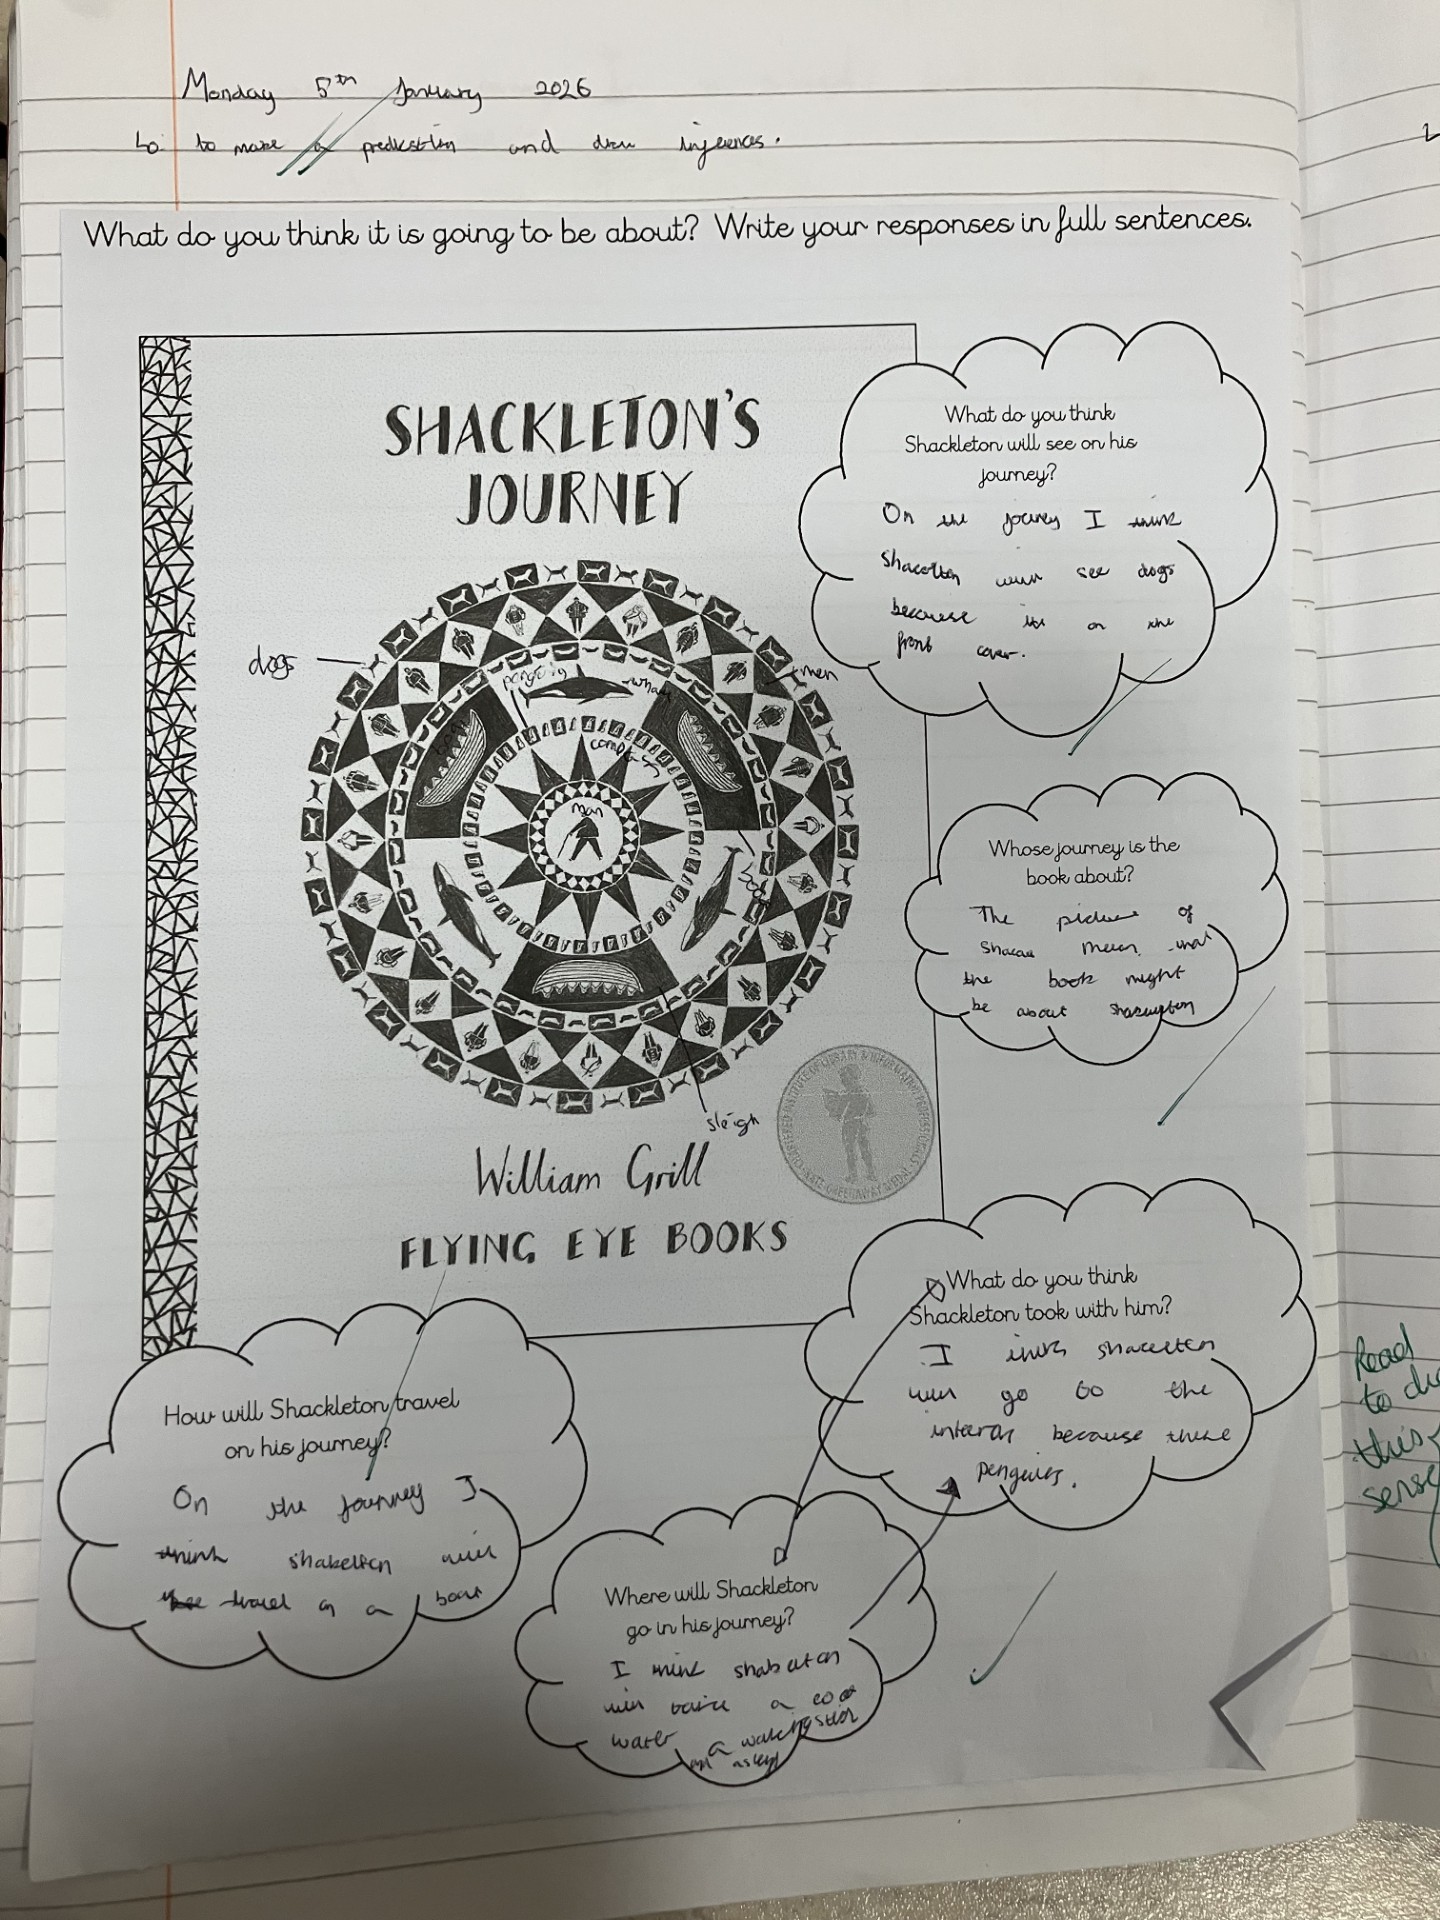 Monday 5th January 2026
Lo: to make a prediction and draw inferences.
What do you think it is going to be about? Write your responses in full sentences.
SHACKLETON'S
JOURNEY
dogs
men
penguins
whale
compass
man
boat
boat
sleigh
William Grill
FLYING EYE BOOKS
What do you think
Shackleton will see on his
journey?
On the journey I think
will see dogs
because its on the
front cover.
Whose journey is the
book about?
The picture of
mean that
the book might
be about
What do you think
Shackleton took with him?
I think
will go to the
because there
penguins.
How will Shackleton travel
on his journey?
On the journey I
think shakelton will
travel on a boat
Where will Shackleton
go in his journey?
I think
will a
water a
Read
to
this